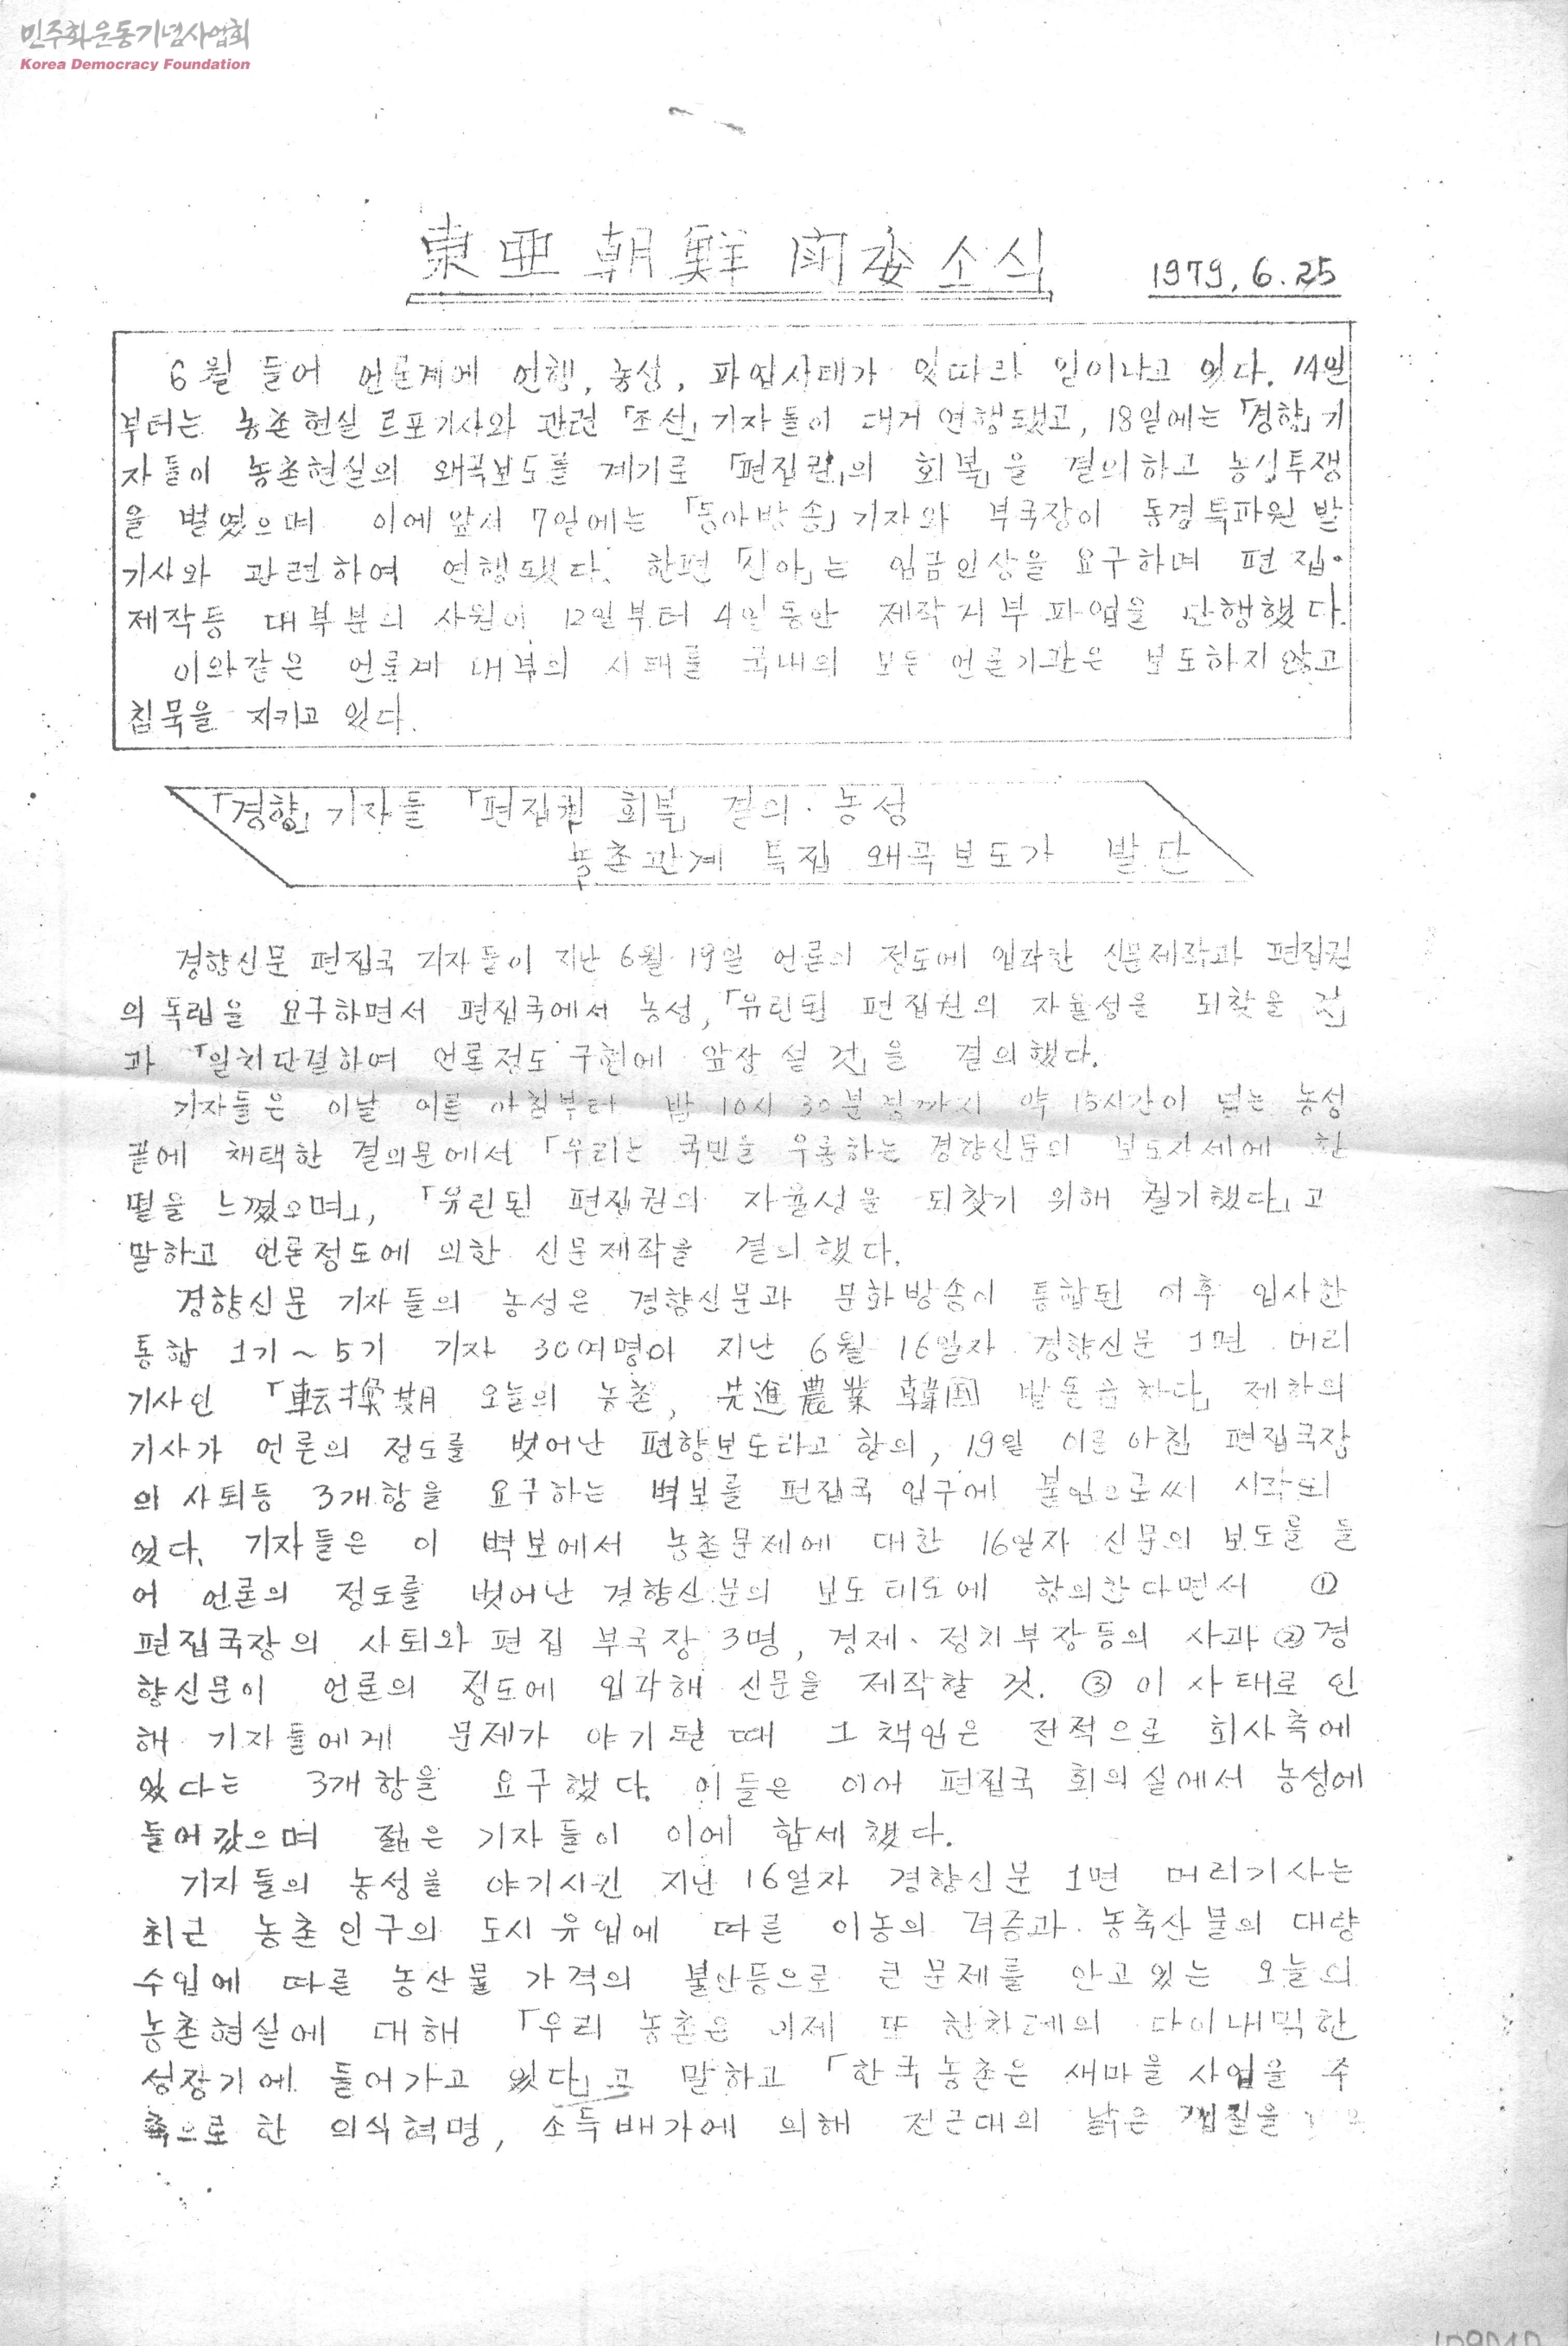 민주화운동기념사업회
Korea Democracy Foundation
東亞 朝鮮 鬪委소식
1979. 6. 25
6월 들어 언론계에 연행, 농성, 파업사태가 잇따라 일어나고 있다. 14일
부터는 농촌현실 르포기사와 관련 「조선」 기자들이 대거 연행됐고, 18일에는 「경향」 기
자들이 농촌현실의 왜곡보도를 계기로 「편집권」의 회복」을 결의하고 농성투쟁
을 벌였으며 이에 앞서 7일에는 「동아방송」 기자와 부국장이 동경특파원 발
기사와 관련하여 연행됐다. 한편 「신아」는 임금인상을 요구하며 편집·
제작등 대부분의 사원이 12일부터 4일동안 제작거부 파업을 단행했다.
이와같은 언론계 내부의 사태를 국내의 모든 언론기관은 보도하지않고
침묵을 지키고 있다.
「경향」 기자들 「편집권 회복」 결의·농성
농촌관계 특집 왜곡보도가 발단
경향신문 편집국 기자들이 지난 6월 19일 언론의 정도에 입각한 신문제작과 편집권
의 독립을 요구하면서 편집국에서 농성, 「유린된 편집권의 자율성을 되찾을 것」
과 「일치단결하여 언론정도 구현에 앞장 설 것」을 결의했다.
기자들은 이날 이른 아침부터 밤 10시 30분경까지 약 15시간이 넘는 농성
끝에 채택한 결의문에서 「우리는 국민을 우롱하는 경향신문의 보도자세에 환
멸을 느꼈으며」, 「유린된 편집권의 자율성을 되찾기 위해 궐기했다」고
말하고 언론정도에 의한 신문제작을 결의했다.
경향신문 기자들의 농성은 경향신문과 문화방송이 통합된 이후 입사한
통합 1기~5기 기자 30여명이 지난 6월 16일자 경향신문 1면 머리
기사인 「転換期 오늘의 농촌, 先進農業 韓国 발돋음하다」 제하의
기사가 언론의 정도를 벗어난 편향보도라고 항의, 19일 이른 아침 편집국장
의 사퇴등 3개항을 요구하는 벽보를 편집국 입구에 붙임으로써 시작되
었다. 기자들은 이 벽보에서 농촌문제에 대한 16일자 신문의 보도를 들
어 언론의 정도를 벗어난 경향신문의 보도태도에 항의한다면서 ①
편집국장의 사퇴와 편집 부국장 3명, 경제·정치부장등의 사과 ②경
향신문이 언론의 정도에 입각해 신문을 제작할 것. ③ 이 사태로 인
해 기자들에게 문제가 야기될 때 그 책임은 전적으로 회사측에
있다는 3개항을 요구했다. 이들은 이어 편집국 회의실에서 농성에
들어갔으며 젊은 기자들이 이에 합세했다.
기자들의 농성을 야기시킨 지난 16일자 경향신문 1면 머리기사는
최근 농촌인구의 도시유입에 따른 이농의 격증과 농축산물의 대량
수입에 따른 농산물 가격의 불안등으로 큰 문제를 안고있는 오늘의
농촌현실에 대해 「우리 농촌은 이제 또 한차례의 다이내믹한
성장기에 들어가고 있다」고 말하고 「한국농촌은 새마을 사업을 주
축으로 한 의식혁명, 소득배가에 의해 전근대의 낡은 껍질을